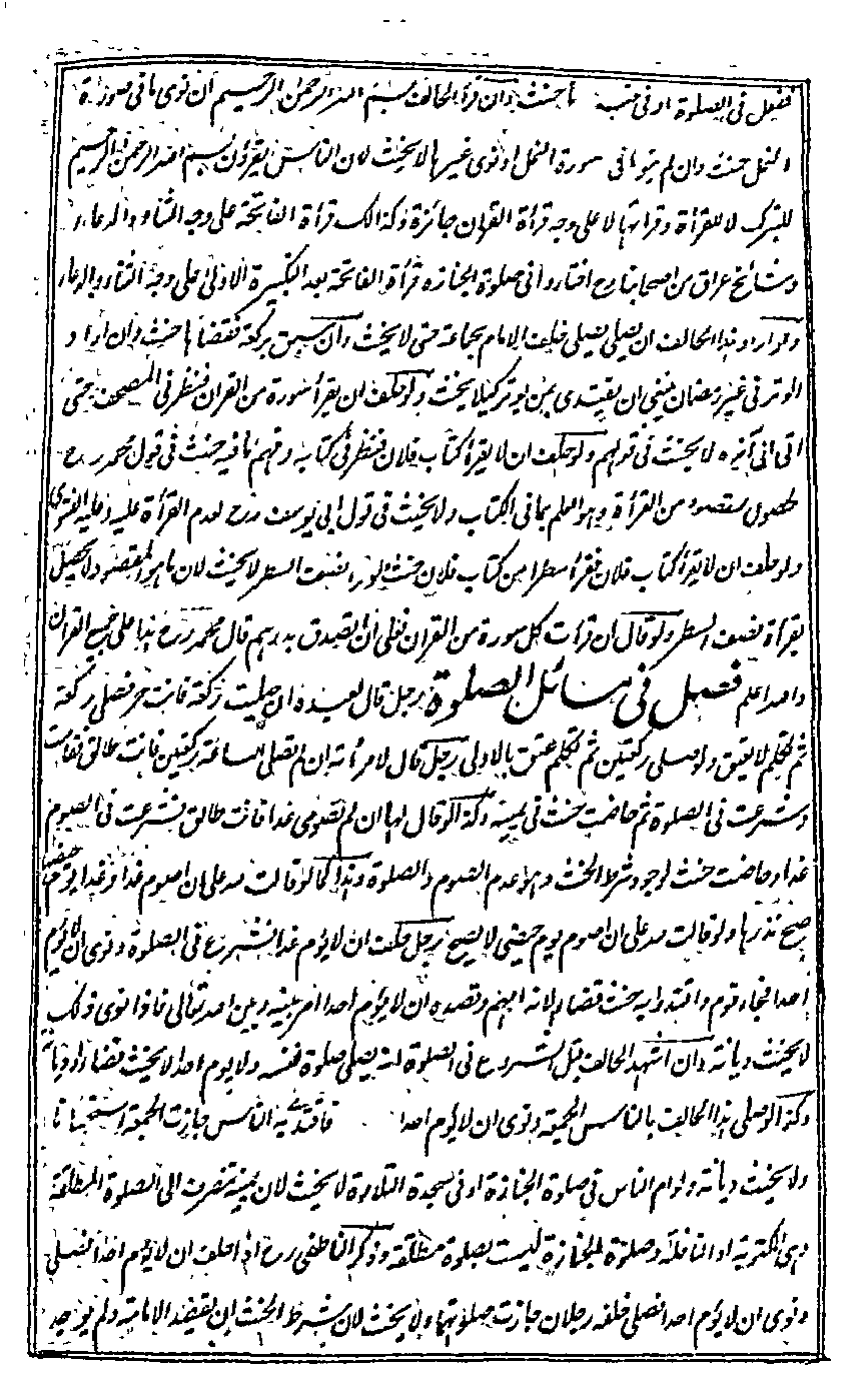 ففعل فى الصلوة او فى خارجها حنث وان قرأ الحالف بسم الله الرحمن الرحيم ان نوى ما فى سورة
النمل حنث وان لم ينو ما فى سورة النمل او نوى غيرها لا يحنث لان الناس يقرؤن بسم الله الرحمن الرحيم
للتبرك لا للقرأة وقرأتها لا على وجه قرأة القران جائزة وكذالك قرأة الفاتحة على وجه الثناء والدعاء
ومشائخ عراق من اصحابنا رح اختاروا فى صلوة الجنازه قرأة الفاتحة بعد التكبيرة الاولى على وجه الثناء والدعاء
ولو اراد هذا الحالف ان يصلى يصلى خلف الامام بجماعة حتى لا يحنث وان سبق بركعة فقضاها حنث وان اراد
الوتر فى غير رمضان ينبغى ان يقتدى بمن يوتر كيلا يحنث ولو حلف ان يقرأ سورة من القران فنظر فى المصحف حتى
اتى الى آخره لا يحنث فى قولهم ولو حلف ان لا يقرأ كتاب فلان فنظر فى كتابه وفهم ما فيه حنث فى قول محمد رح
لحصول مقصوده من القرأة وهو العلم بما فى الكتاب ولا يحنث فى قول ابى يوسف رح لعدم القرأة عليه وعليه الفتوى
ولو حلف ان لا يقرأ كتاب فلان فقرأ سطرا من كتاب فلان حنث ولو قرأ نصف السطر لا يحنث لان ما هو المقصود لا يحصل
بقرأة نصف السطر ولو قال ان قرأت كل سورة من القران فعلى ان اتصدق بدرهم قال محمد رح هذا على جميع القران
والله اعلم فصل فى مسائل الصلوة رجل قال لعبده ان صليت ركعة فانت حر فصلى ركعة
ثم تكلم لا يعتق ولو صلى ركعتين ثم تكلم عتق بالاولى رجل قال لامرأته ان لم تصلى الساعة ركعتين فانت طالق فقامت
وشرعت فى الصلوة ثم حاضت حنث فى يمينه وكذا لو قال لها ان لم تصومى غدا فانت طالق فشرعت فى الصوم
غدا وحاضت حنث لوجود شرط الحنث وهو عدم الصوم والصلوة وهذا كما لو قالت لله على ان اصوم غدا وغدا يوم حيضها
صح نذرها ولو قالت لله على ان اصوم يوم حيضى لا يصح رجل حلف ان لا يؤم غدا فشرع فى الصلوة ونوى ان لا يؤم
احدا فجاء قوم واقتدوا به حنث قضاء لانه امهم وقصده ان لا يؤم احدا امر بينه وبين الله تعالى فاذا نوى ذلك
لا يحنث ديانة وان اشهد الحالف قبل الشروع فى الصلوة انه يصلى صلوة نفسه ولا يوم احدا لا يحنث قضاء وديانة
وكذا لو صلى هذا الحالف بالناس الجمعة ونوى ان لا يؤم احدا فاقتدى به الناس جازت الجمعة استحسانا
ولا يحنث ديانة ولو ام الناس فى صلوة الجنازة او فى سجدة التلاوة لا يحنث لان يمينه تنصرف الى الصلوة المطلقة
وهى المكتوبة او النافلة وصلوة الجنازة ليست بصلوة مطلقة وذكر الناطفى رح اذا حلف ان لا يؤم احدا فصلى
ونوى ان لا يؤم احدا فصلى خلفه رجلان جازت صلوتهما ولا يحنث لان شرط الحنث ان يقصد الامامة ولم يوجد